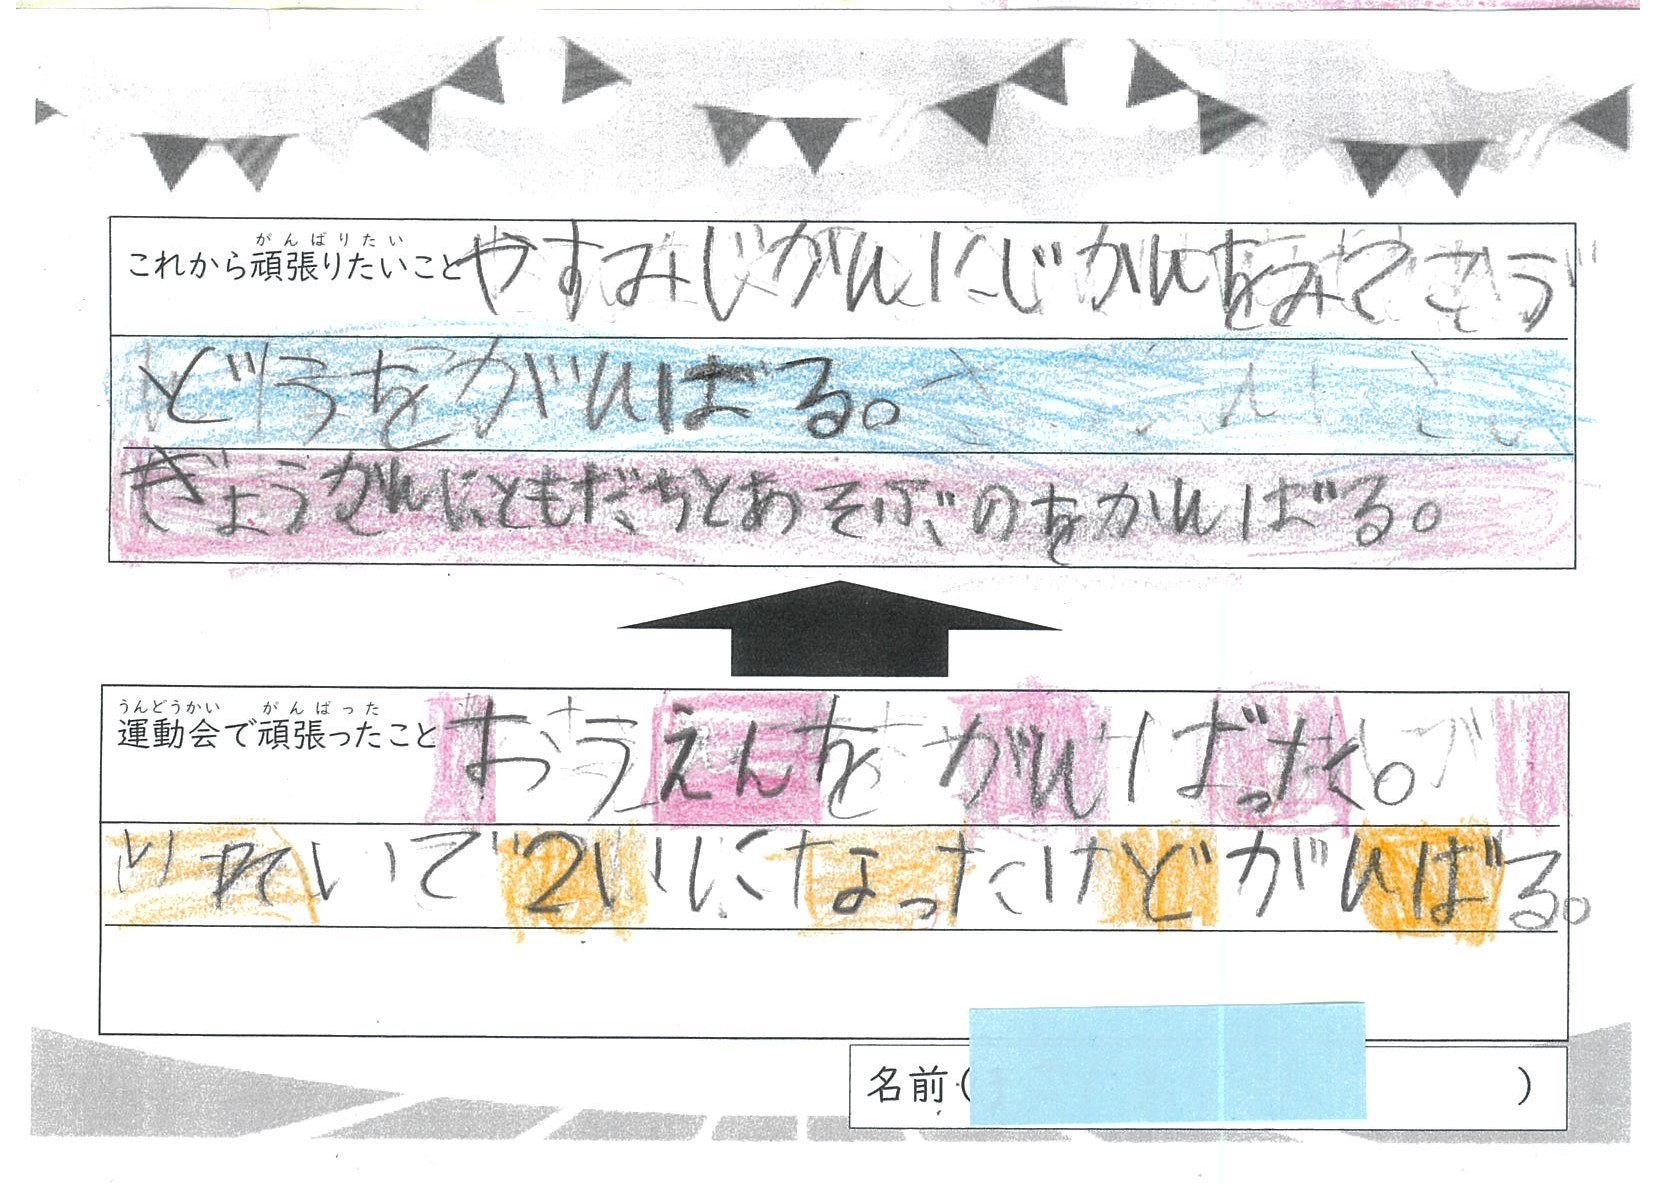 がんばりたい
これから頑張りたいこと やすみじがんにじかんをみてこうど
どうをがんばる。
ぎょうかんにともだちとあそぶのをかんばる。
うんどうかい がんばった
運動会で頑張ったこと おうえんをがんばった。
いれいで2いになったけどがんばる。
名前( )